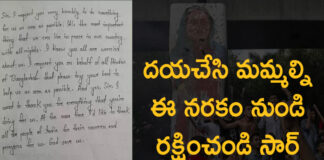 Sir. I request you very humbly to do something
for us as soon as possible. It's the most important
thing that we can live in peace in our country
with all rights. I know you all are worried
about us. I request you on behalf of all Hindus
of Bangladesh that please try your best to
help us as soon as possible. And yes Sir. I
want to thank you for everything that you're
doing for us. At the same time I'd like to thank
all the people of India for their concern and
prayers for us. God save us.
దయచేసి మమ్మల్ని
ఈ నరకం నుండి
రక్షించండి సార్